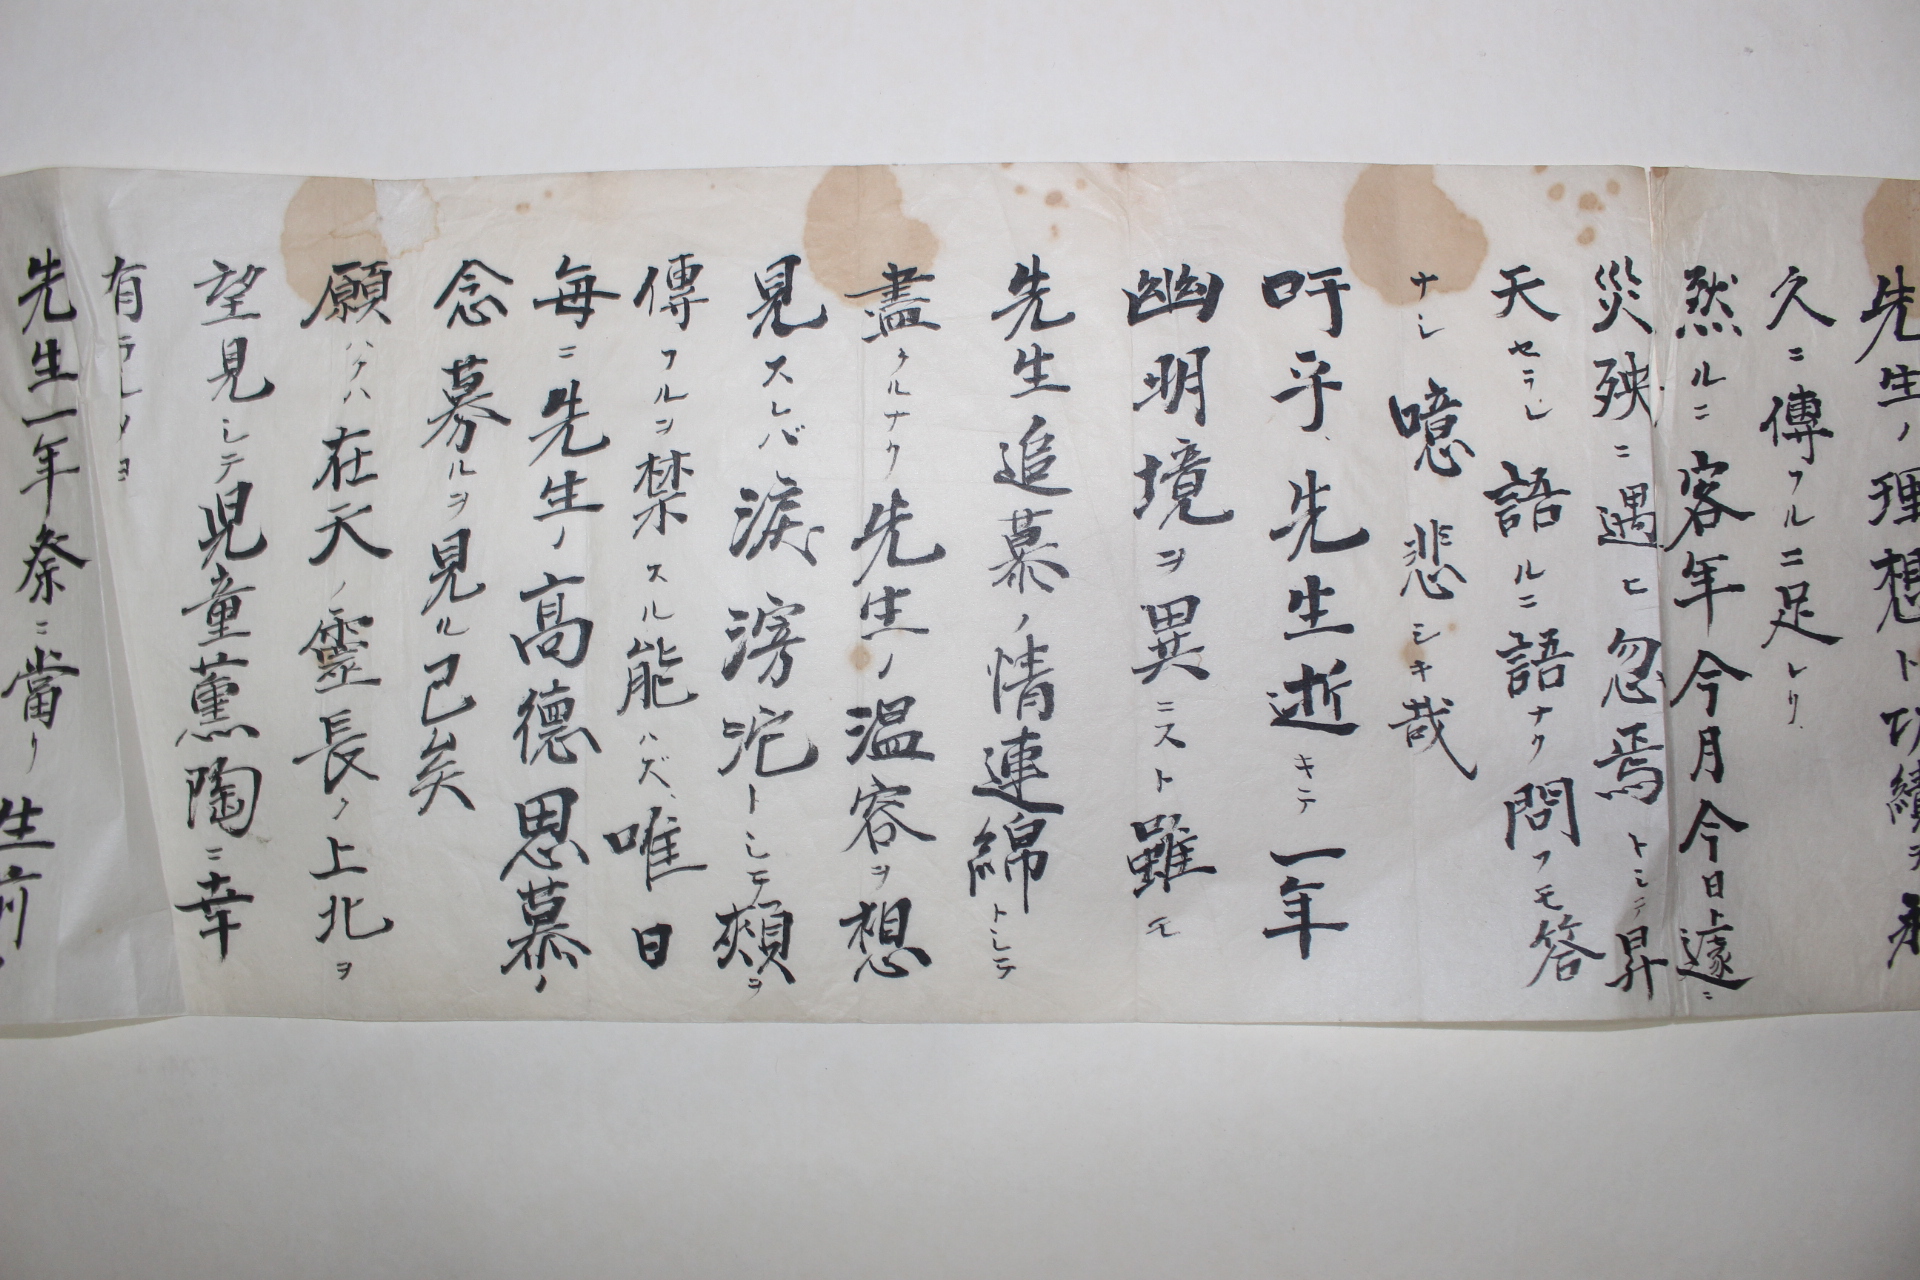 先生ノ理想ト功績ヲ永
久ニ傳フルニ足レリ
然ルニ客年今月今日遽ニ
災殃ニ遇ヒ忽焉トシテ昇
天セラレ語ルニ語ナク問フモ答
ナレ噫悲シキ哉
吁乎、先生逝キテ一年
幽明境ヲ異ニスト雖モ
先生追慕ノ情連綿トシテ
盡クルナク先生ノ温容ヲ想
見スレバ淚滂沱トシテ頰ヲ
傳フルヲ禁スル能ハズ、唯日
每ニ先生ノ高德思慕ノ
念募ルヲ見ル已矣
願ハクハ在天ノ靈長ク上北ヲ
望見シテ児童薫陶ニ幸
有ラレンヲ
先生一年祭ニ當リ生前